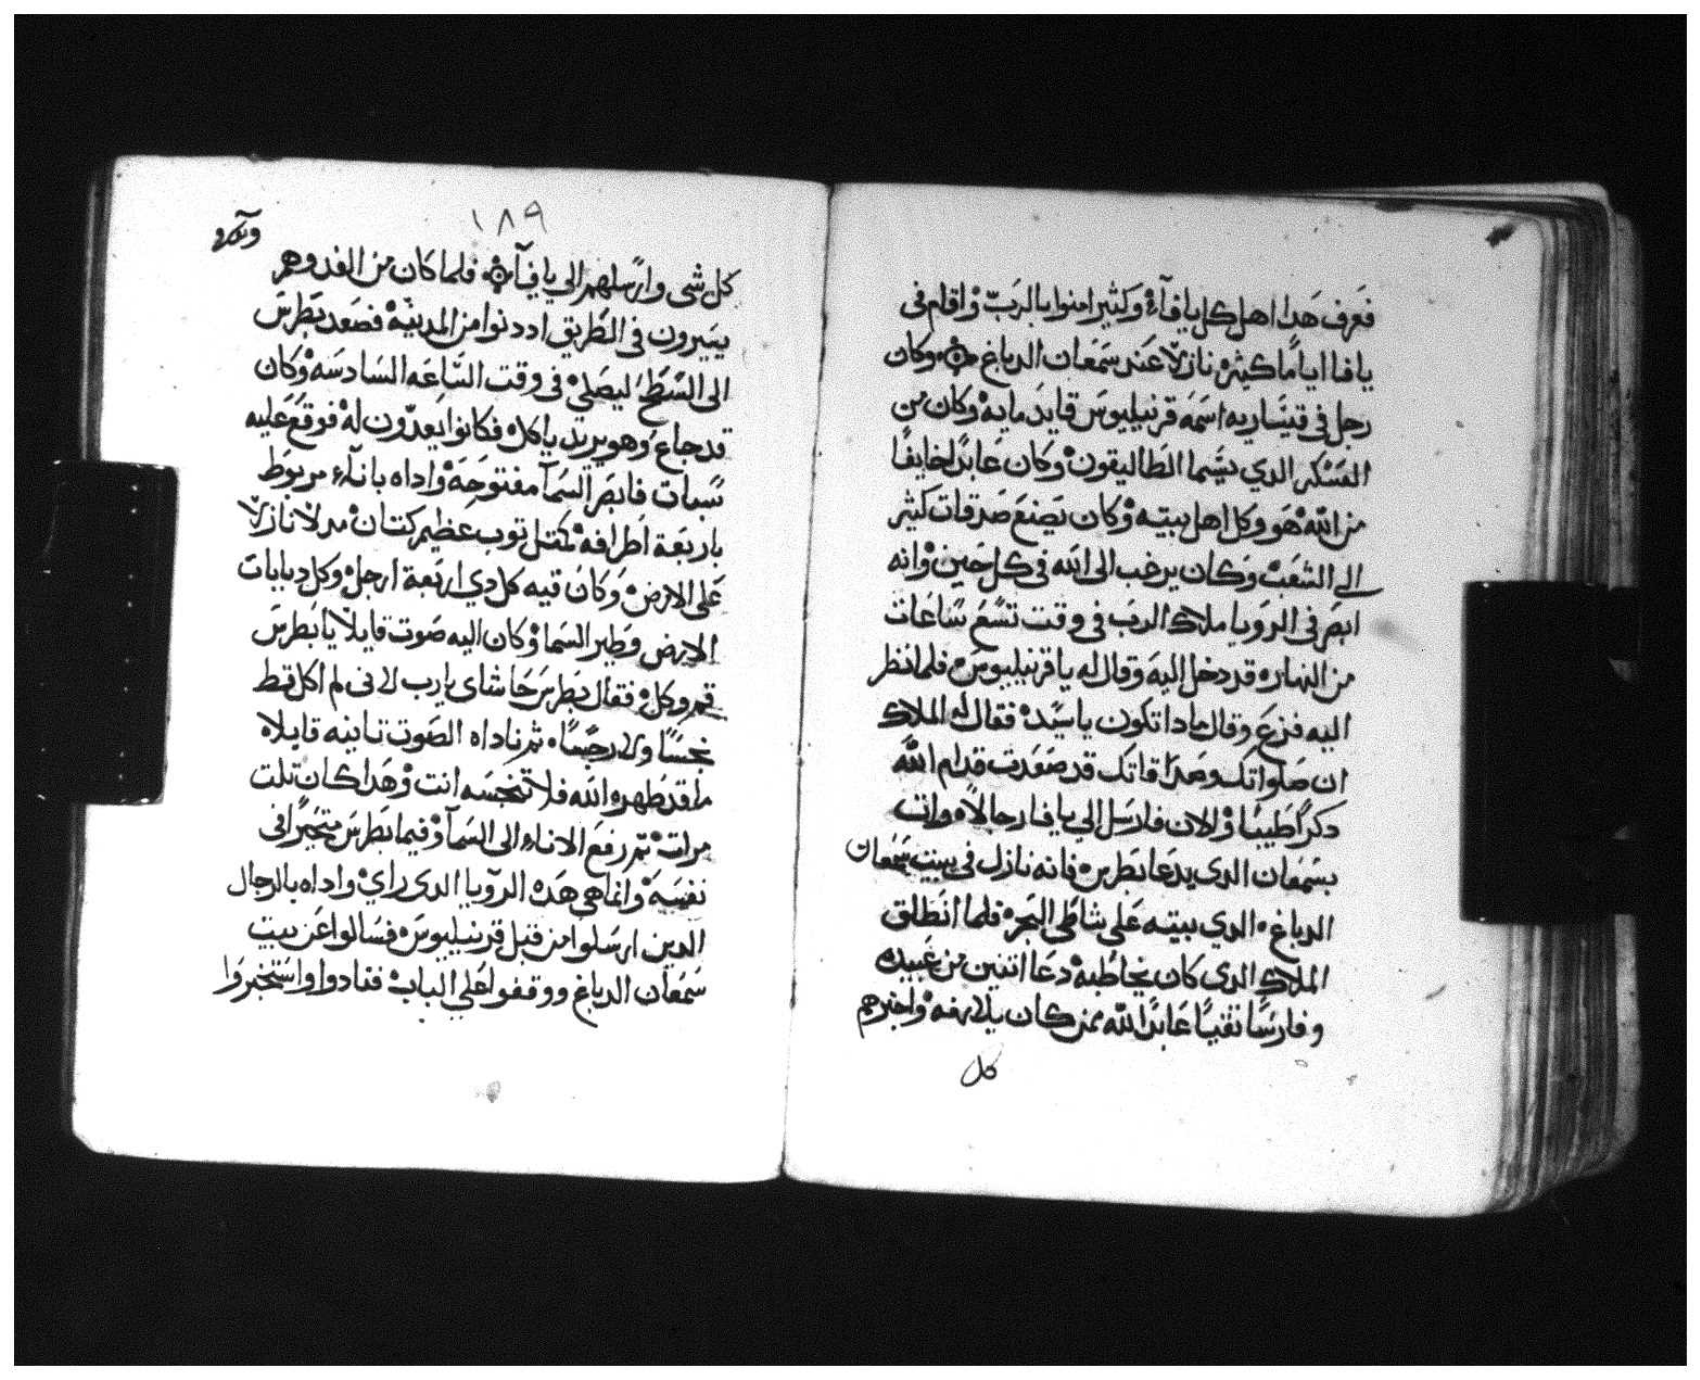 فعرف هدا اهل كل يافآ وكثير امنوا بالرب واقام فى
يافا اياما كثيره نازلا عند سمعان الدباغ وكان
رجل فى قيساريه اسمه قرنيليوس قايد مايه وكان من
العسكر الدي يسما الطاليقون وكان عابدا خايفا
من الله هو وكل اهل بيته وكان يصنع صدقات كثير
الى الشعب وكان يرغب الى الله فى كل حين وانه
ابصر فى الرويا ملاك الرب فى وقت تسع ساعات
من النهار قد دخل اليه وقال له يا قرنيليوس فلما نظر
اليه فزع وقال مادا تكون يا سيد فقال له الملاك
ان صلواتك وصداقاتك قد صعدت قدام الله
دكرا طيبا والان فارسل الي يافا رجالا وات
بسمعان الدى يدعا بطرس فانه نازل فى بيت سمعان
الدباغ الدي بيته على شاطى البحر فلما انطلق
الملاك الدى كان يخاطبه دعا اتنين من عبيده
وفارسا تقيا عابدا لله ممن كان يلازمه واخبرهم
كل
١٨٩
كل شى وارسلهم الي يافآ فلما كان من الغد وهم
يسيرون فى الطريق اد دنوا من المدينة فصعد بطرس
الى السطح ليصلي فى وقت الساعه السادسه وكان
قد جاع وهو يريد ياكل فكانوا يعدون له فوقع عليه
سبات فابصر السمآ مفتوحه واداه بانآء مربوط
باربعة اطرافه كمتل توب عظيم كتان مدلا نازلا
على الارض وكان فيه كل دي اربعة ارجل وكل دبابات
الارض وطير السما وكان اليه صوت قايلا يا بطرس
قم وكل فقال بطرس حاشاى يا رب لانى لم اكل قط
نجسا ولا رجسا ثم ناداه الصوت تانيه قايلا
ما قد طهره الله فلا تنجسه انت وهدا كان تلت
مرات تم رفع الاناء الى السمآ وفيما بطرس متحيرا فى
نفسه وانما هى هده الرويا الدى راي واداه بالرجال
الدين ارسلوا من قبل قرنيليوس فسالوا عن بيت
سمعان الدباغ ووقفوا على الباب فنادوا واستخبروا